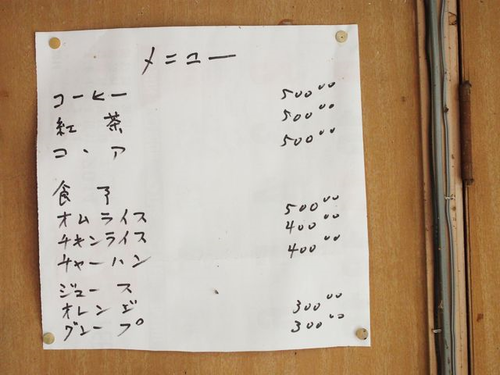 メニュー
コーヒー 500.00
紅茶 500.00
コヽア 500.00
食
オムライス 500.00
チキンライス 400.00
チャーハン 400.00
ジュース
オレンヂ 300.00
グレープ 300.00